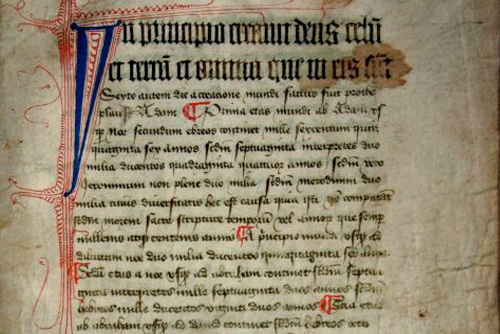 In principio creauit deus celū
et terrā et omnia que in eis sūt
Sexto autem die a creacione mundi factus fuit protho
plaustꝰ Adam ¶ Prima etas mundi ab Adam vsqꝫ
Noe secundum ebreos continet mille sexcentum quin
quaginta sex annos scdm septuaginta interpretes duo
milia ducentos quadraginta quattuor annos scdm vero
Jeronimum non plene duo milia scdm metodium duo
milia causa diuersitatis hec est causa quia isti computant
scdm morem sacre scripture temporum vel annos que semꝑ
millenos centenos annos ¶ A principio mundi vsqꝫ ad
diluuium duo milia ducenti quinquaginta sex anni
Secunda etas a noe vsqꝫ ad abraham continet scdm septua
ginta interpretes mille septuaginta duos annos scdm
hebreos mille ducentos viginti duos annos ¶ Tercia etas
ab abraham vsqꝫ ad dauid continet scdm hebreos